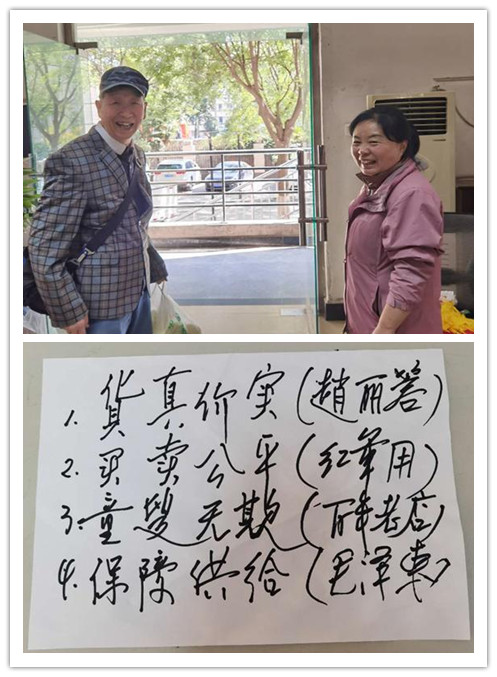 1. 貨真价实(趙丽蓉)
2. 买卖公平(红軍用)
3. 童叟无欺(百年老店)
4. 保障供给(毛泽東)